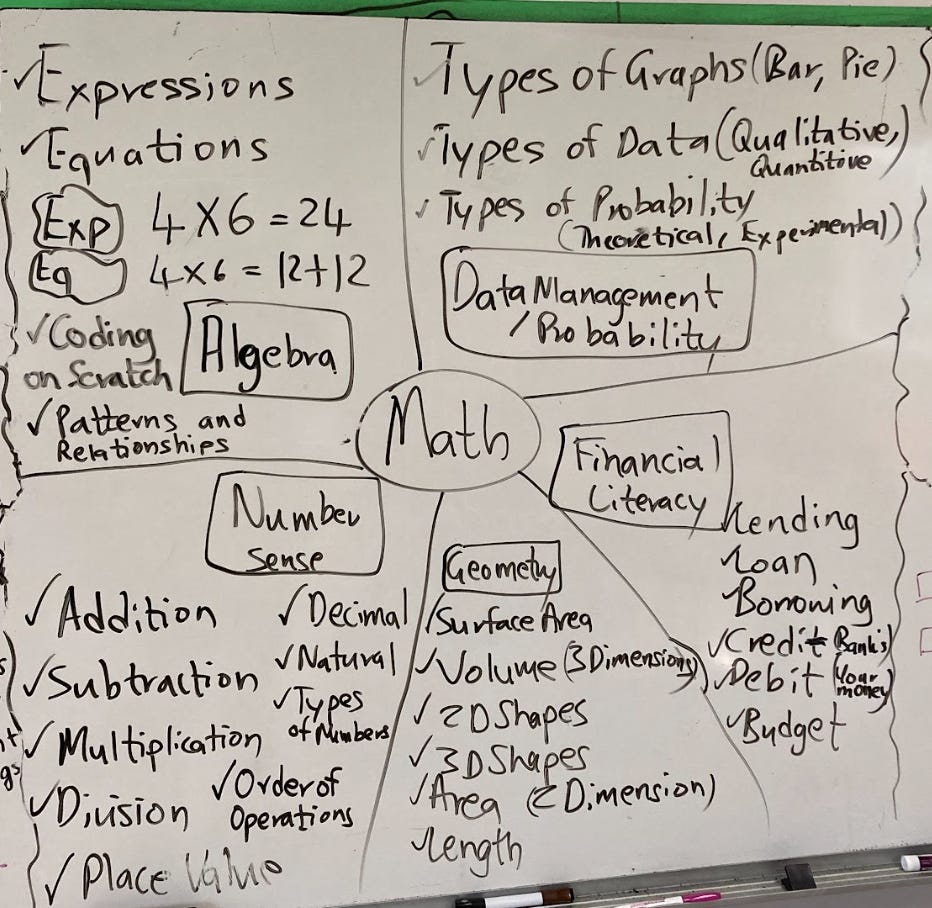 ✓Expressions
✓Equations
Exp 4 X 6 = 24
Eq 4 x 6 = 12+12
Algebra
✓Coding
on Scratch
✓Patterns and
Relationships
✓Types of Graphs (Bar, Pie)
✓Types of Data (Qualitative,)
Quantitive
✓Types of Probability
(Theoretical, Experimental)
Data Management
/Probability
Math
Financial
Literacy
✓Lending
✓Loan
✓Borrowing
✓Credit (Bank's)
✓Debit (Your
money)
✓Budget
Number
sense
✓Addition
✓Subtraction
✓Multiplication
✓Division
✓Place Value
✓Decimal
✓Natural
✓Types
of Numbers
✓Order of
Operations
Geometry
✓Surface Area
✓Volume (3 Dimensions)
✓2D Shapes
✓3D Shapes
✓Area (2 Dimension)
✓Length